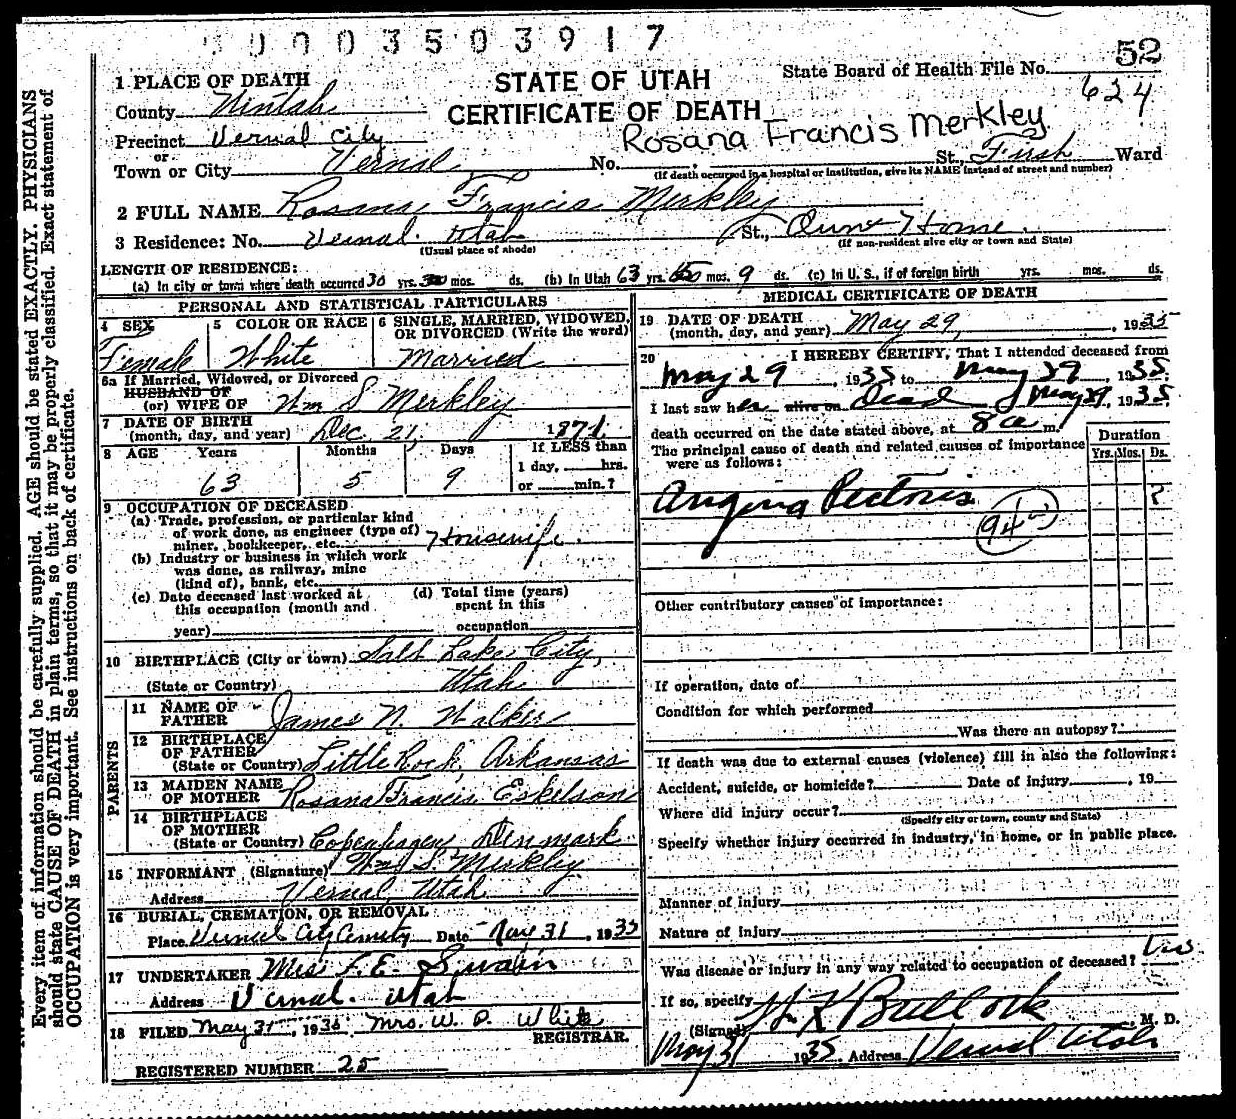 0 0 0 3 5 0 3 9 1 7
52
State Board of Health File No.
624
STATE OF UTAH
CERTIFICATE OF DEATH
Rosana Francis Merkley
1 PLACE OF DEATH
County Uintah
Precinct Vernal City
or
Town or City Vernal No. St., First Ward
(If death occurred in a hospital or institution, give its NAME instead of street and number)
2 FULL NAME Rosana Francis Merkley
3 Residence: No. Vernal Utah St., Own Home.
(Usual place of abode) (If non-resident give city or town and State)
LENGTH OF RESIDENCE:
(a) In city or town where death occurred 30 yrs. mos. ds. (b) In Utah 63 yrs. mos. 9 ds. (c) In U. S., if of foreign birth yrs. mos. ds.
PERSONAL AND STATISTICAL PARTICULARS
4 SEX Female
5 COLOR OR RACE White
6 SINGLE, MARRIED, WIDOWED, OR DIVORCED (Write the word) Married
6a If Married, Widowed, or Divorced
HUSBAND OF
(or) WIFE OF Wm S Merkley
7 DATE OF BIRTH
(month, day, and year) Dec. 21, 1871
8 AGE Years Months Days If LESS than
1 day, hrs.
63 5 9 or min.?
9 OCCUPATION OF DECEASED
(a) Trade, profession, or particular kind
of work done, as engineer (type of)
miner, bookkeeper, etc. Housewife.
(b) Industry or business in which work
was done, as railway, mine
(kind of), bank, etc.
(c) Date deceased last worked at
this occupation (month and
year)
(d) Total time (years)
spent in this
occupation
10 BIRTHPLACE (City or town) Salt Lake City,
(State or Country) Utah
PARENTS
11 NAME OF
FATHER James N. Walker
12 BIRTHPLACE
OF FATHER
(State or Country) Little Rock, Arkansas
13 MAIDEN NAME
OF MOTHER Rosana Francis Eskelson
14 BIRTHPLACE
OF MOTHER
(State or Country) Copenhagen, Denmark.
15 INFORMANT (Signature) Wm S. Merkley
Address Vernal, Utah
16 BURIAL, CREMATION, OR REMOVAL
Place Vernal City Cemetery Date May 31, 1935
17 UNDERTAKER Mrs. L. E. Swain
Address Vernal. Utah
18 FILED May 31, 1935 Mrs. W. P. White
REGISTRAR.
REGISTERED NUMBER 25
MEDICAL CERTIFICATE OF DEATH
19 DATE OF DEATH
(month, day, and year) May 29, 1935
20 I HEREBY CERTIFY, That I attended deceased from
May 29, 1935 to May 29 1935.
I last saw her alive on Dead May 29, 1935
death occurred on the date stated above, at 8 a m.
The principal cause of death and related causes of importance
were as follows:
Duration
Yrs. Mos. Ds.
Angina Pectoris ?
94
Other contributory causes of importance:
If operation, date of
Condition for which performed
Was there an autopsy?
If death was due to external causes (violence) fill in also the following:
Accident, suicide, or homicide? Date of injury , 19
Where did injury occur?
(Specify city or town, county and State)
Specify whether injury occurred in industry, in home, or in public place.
Manner of injury
Nature of injury
Was disease or injury in any way related to occupation of deceased?
If so, specify
(Signed) H X Bullock, M. D.
May 31 1935 Address Vernal Utah
Every item of information should be carefully supplied. AGE should be stated EXACTLY. PHYSICIANS
should state CAUSE OF DEATH in plain terms, so that it may be properly classified. Exact statement of
OCCUPATION is very important. See instructions on back of certificate.